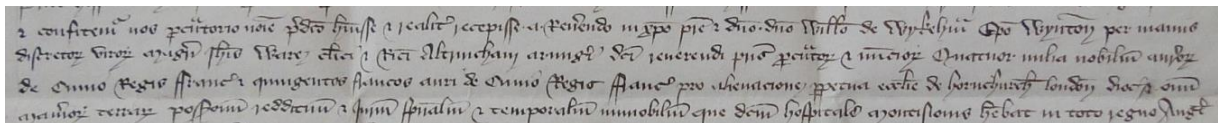 & confitem̃ nos ꝓcur̃atorio noĩe p̃dc̃o h̃uisse & realit̃ recepisse a Reũendo in xp̃o p̃re & dño dño Willo de Wykeh̃m Ep̃o Wyntoñ per manus
discretoꝝ viroꝝ Magr̃i Joh̃is Ware cl̃ici & Rici Altrincham armigi dc̃i reverendi pr̃is ꝓcur̃atoꝝ & nũcioꝝ Quatuor milia nobiliũ auroꝝ
de Cunio Regis ffranc̃ & quingentos francos auri de Cunio Regis ffranc̃ pro alienacione ꝑpetua eccl̃ie de hornchurch london dioc̃ & oĩm
Maũioꝝ terraꝝ possessionũ reddituũ & Juriũ sp̃ualiũ & temporaliũ immobiliũ que dcm̃ hospitale Montisiovis h̃ebat in toto regno Angl̃